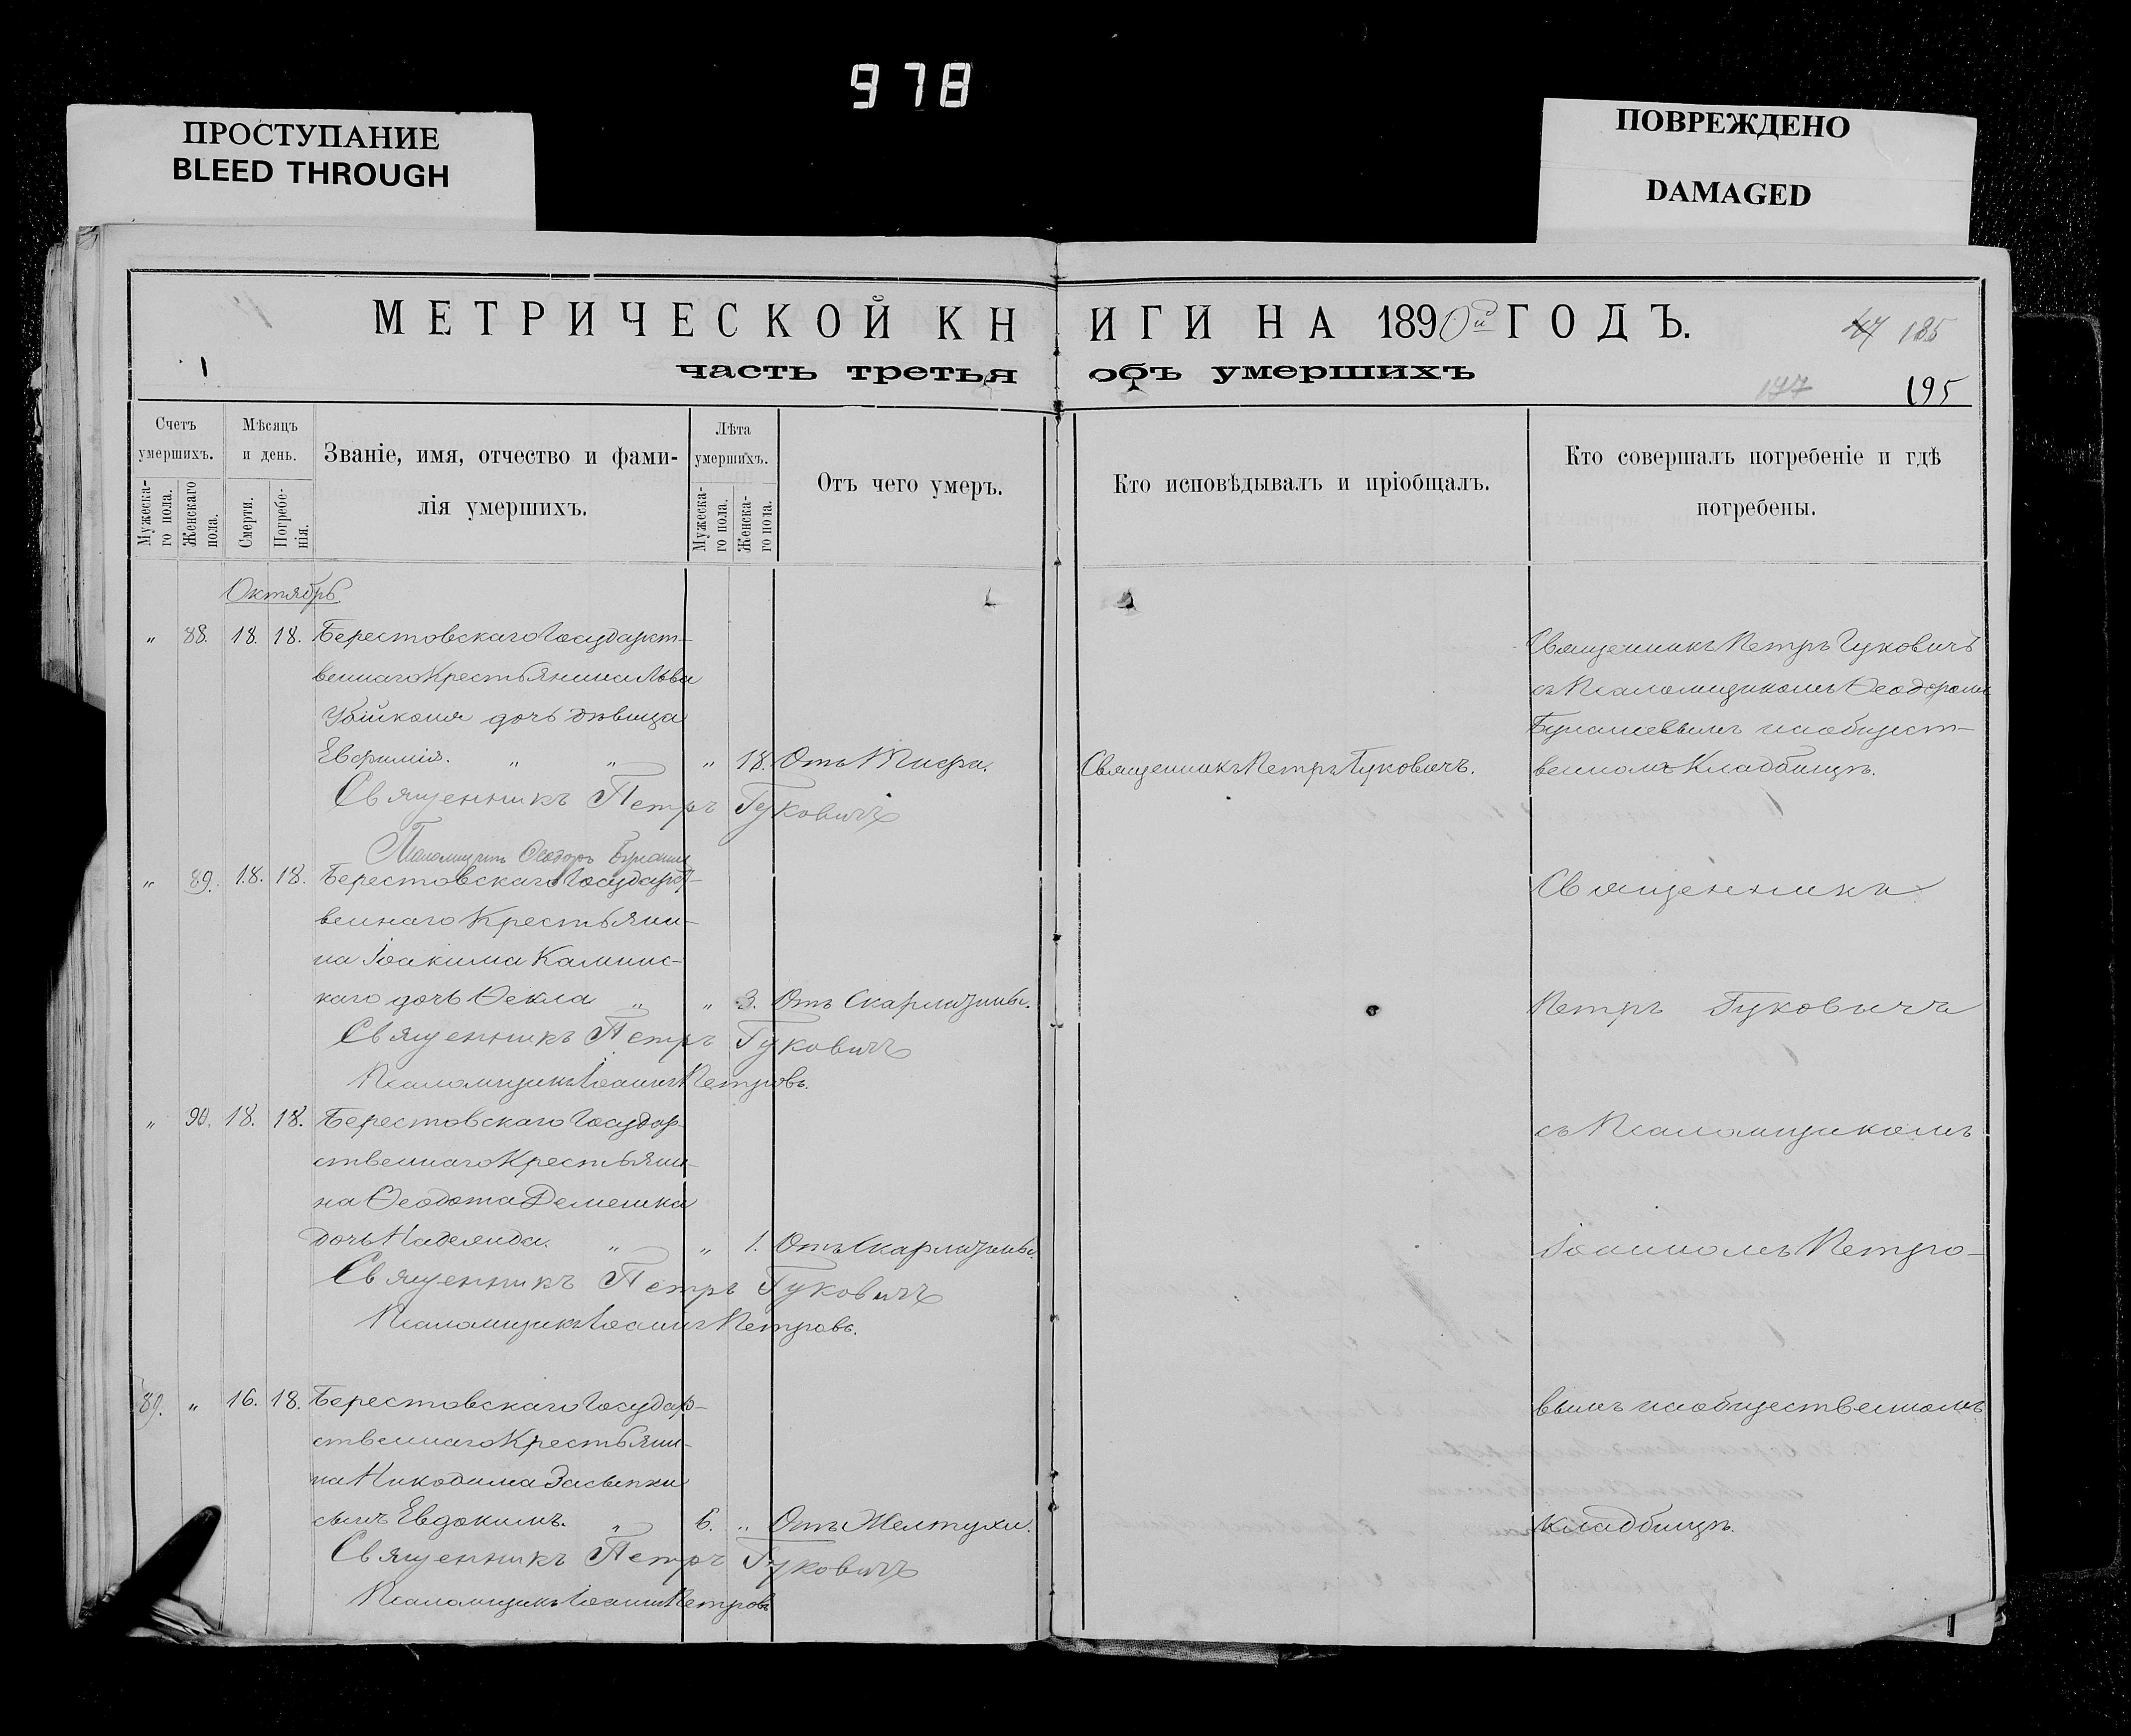 978
ПРОСТУПАНИЕ
BLEED THROUGH
ПОВРЕЖДЕНО
DAMAGED
МЕТРИЧЕСКОЙ КНИГИ НА 1890й ГОДЪ.
185
часть третья объ умершихъ
195
Счетъ умершихъ.
Мужеска-го пола.
Женскаго пола.
Мѣсяцъ и день.
Смерти.
Погребе-нія.
Званіе, имя, отчество и фами-
лія умершихъ.
Лѣта умершихъ.
Мужеска-го пола.
Женска-го пола.
Отъ чего умеръ.
Кто исповѣдывалъ и пріобщалъ.
Кто совершалъ погребеніе и гдѣ
погребены.
Октябрь
„ 88. 18. 18. Берестовскаго Государст-
веннаго Крестьянина Льва
дочь дѣвица
Евфимія. „ „ „ 18. Отъ Тифа.
Священникъ Петръ Гуковичъ.
Священникъ Петръ Гуковичъ
съ Псаломщикомъ Ѳеодоромъ
на общест-
венномъ Кладбищѣ.
Священникъ Петръ Гуковичъ
Псаломщикъ Ѳеодоръ
„ 89. 18. 18. Берестовскаго Государст-
веннаго Крестьяни-
на Іоакима Каминс-
каго дочь Ѳекла „ „ 3. Отъ Скарлатины.
Священникъ Петръ Гуковичъ
Псаломщикъ Іоаннъ Петровъ.
„ 90. 18. 18. Берестовскаго Государ-
ственнаго Крестьяни-
на Ѳеодота Демешка
дочь Надежда. „ „ 1. Отъ Скарлатины.
Священникъ Петръ Гуковичъ
Псаломщикъ Іоаннъ Петровъ.
89. „ 16. 18. Берестовскаго Государ-
ственнаго Крестьяни-
на Никодима Засыпки
сынъ Евдокимъ. „ 6. „ Отъ Желтухи.
Священникъ Петръ Гуковичъ
Псаломщикъ Іоаннъ Петровъ
Священникъ
Петръ Гуковичъ
съ Псаломщикомъ
Іоанномъ Петро-
вымъ на общественномъ
кладбищѣ.